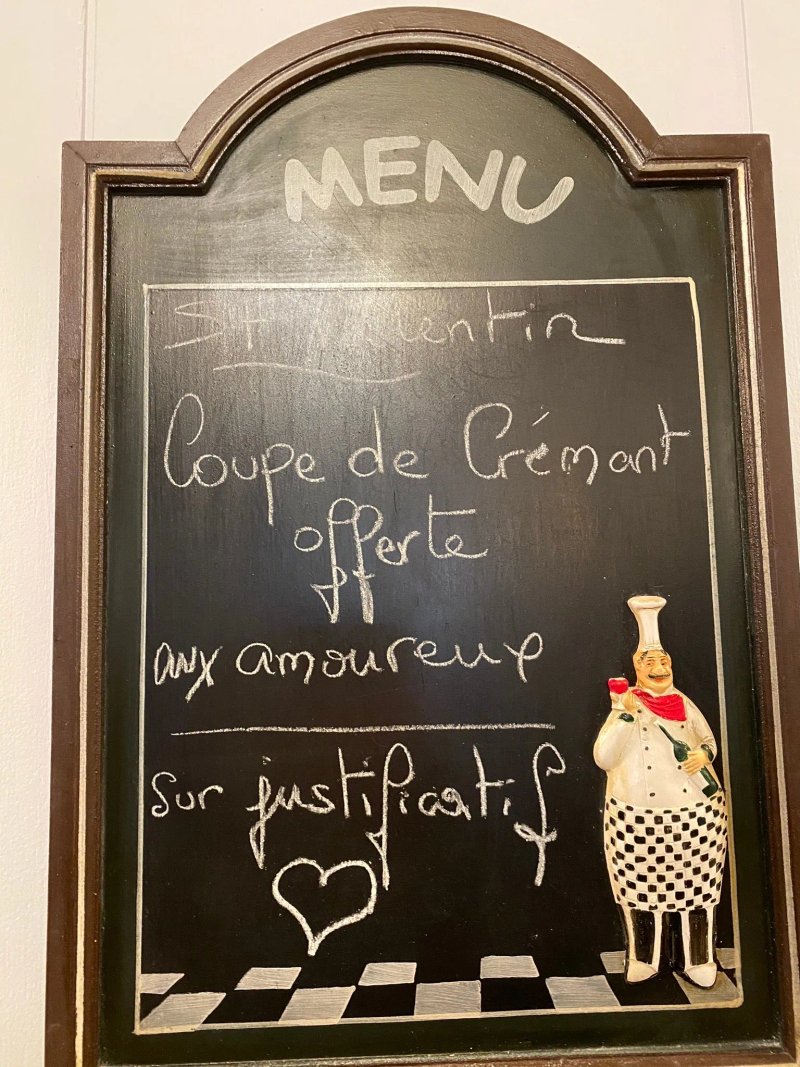 MENU
St Valentin
Coupe de Crémant
offerte
aux amoureux
sur justificatif